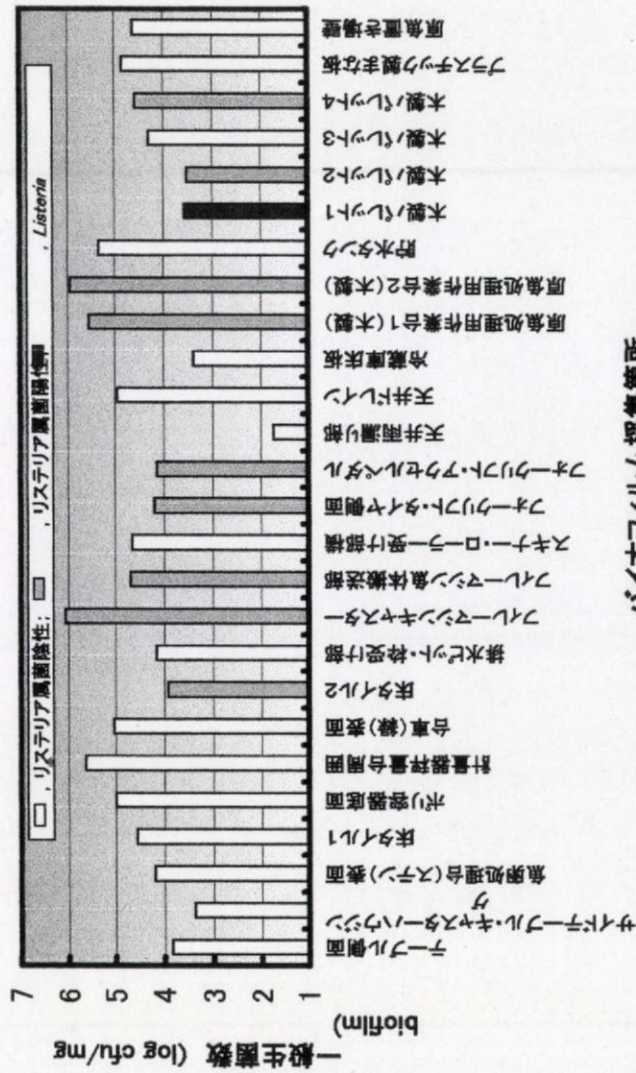 一般生菌数 (log cfu/mg
biofilm)
7
6
5
4
3
2
1
, リステリア属菌陰性; , リステリア属菌陽性 , Listeria
テーブル側面
サイドテーブル・キャスターハウジン
グ
魚卵処理台(ステン)表面
床タイル1
ポリ容器底面
計量器秤量台周囲
台車(緑)表面
床タイル2
排水ピット・枠受け部
フィレーマシンキャスター
フィレーマシン魚体搬送部
スキナー・ローラー受け部横
フォークリフト・タイヤ側面
フォークリフト・アクセルペダル
天井雨漏り部
天井ドレイン
冷蔵庫床板
原魚処理用作業台1(木製)
原魚処理用作業台2(木製)
貯水タンク
木製パレット1
木製パレット2
木製パレット3
木製パレット4
プラスチック製まな板
原魚置き場壁